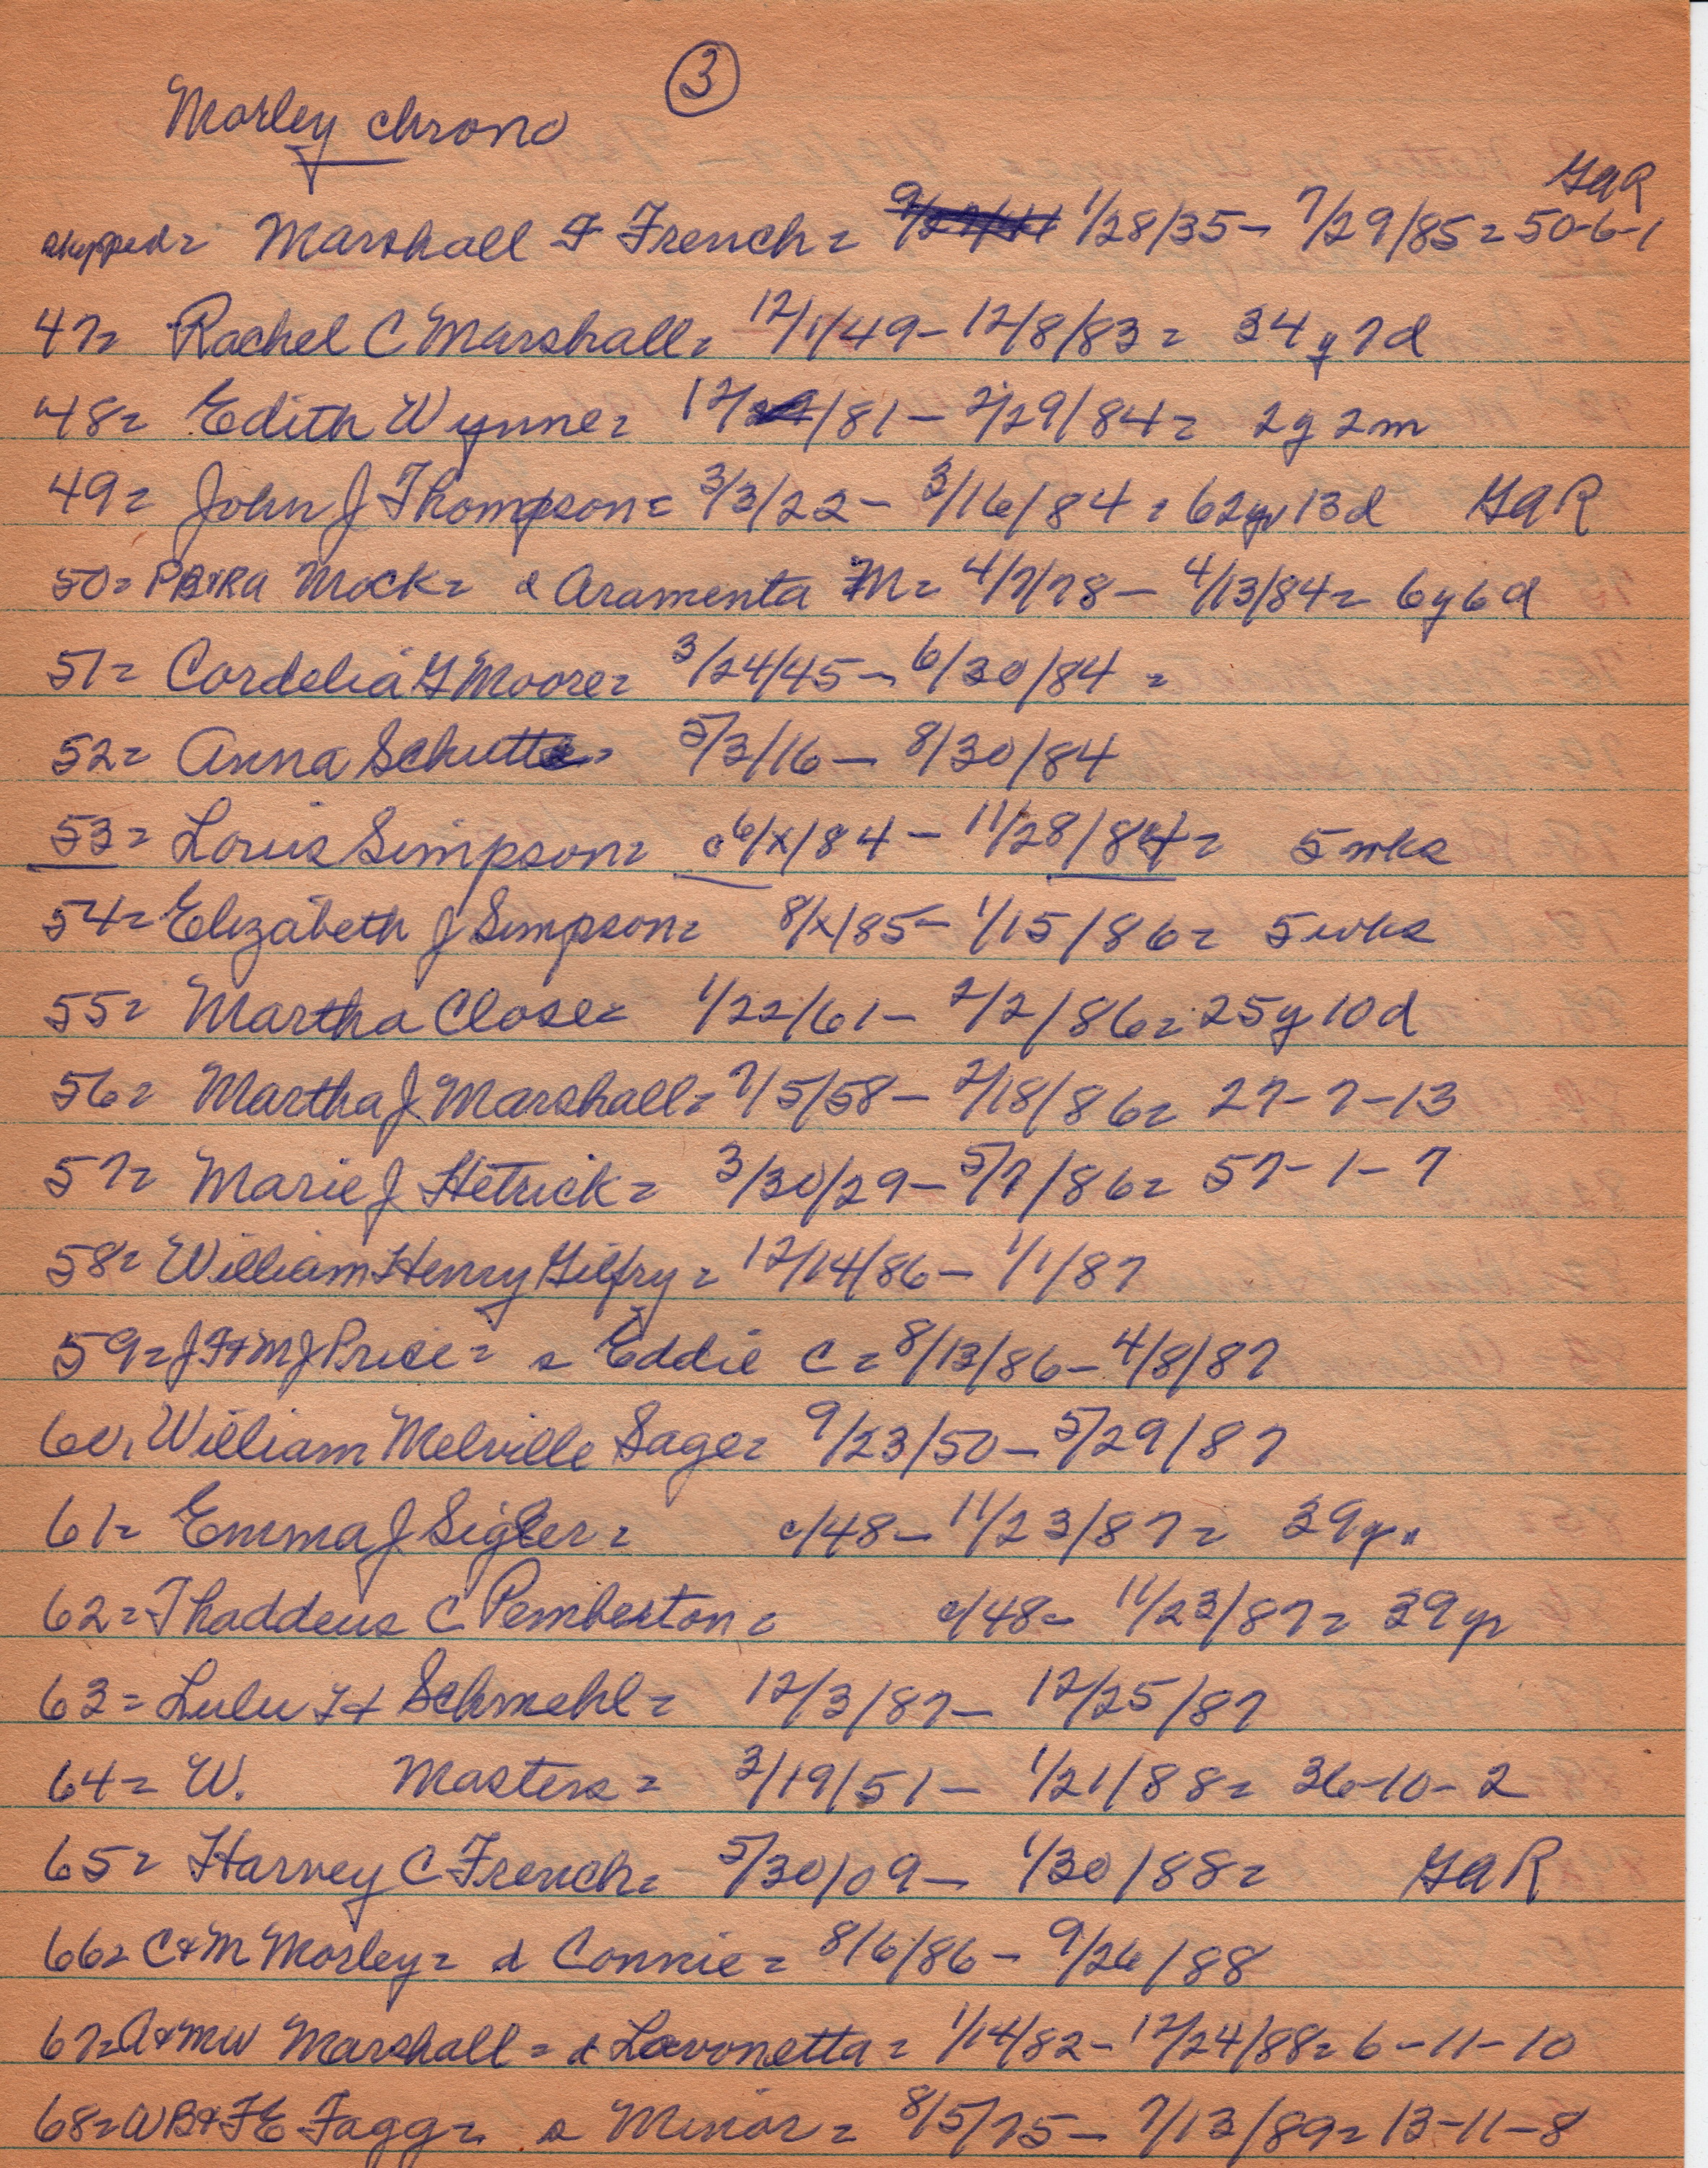 3
Morley chrono
GAR
skipped= Marshall F French= 1/28/35- 7/29/85= 50-6-1
47= Rachel C Marshall= 12/1/49- 12/8/83= 34y 7d
48= Edith Wynne= 12/ /81- 2/29/84= 2y 2m
49= John J Thompson= 3/3/22- 3/16/84= 62yr 13d GAR
50= PB&RA Mock= d Aramenta M= 4/7/78- 4/13/84= 6y6d
51= Cordelia G Moore= 3/24/45- 6/30/84=
52= Anna Schutte= 5/3/16- 8/30/84
53= Louis Simpson= c6/x/84- 11/28/84= 5mks
54= Elizabeth J Simpson= 8/x/85- 1/15/86= 5wks
55= Martha Close= 1/22/61- 2/2/86= 25y10d
56= Martha J Marshall= 7/5/58- 2/18/86= 27-7-13
57= Marie J Hetrick= 3/30/29- 5/7/86= 57-1-7
58= William Henry Gilfry= 12/14/86- 1/1/87
59= J F&MJ Price= s Eddie C= 8/13/86- 4/8/87
60, William Melville Sage= 9/23/50- 5/29/87
61= Emma J Sigler= c/48- 11/23/87= 39yr
62= Thaddeus C Pemberton= c/48- 11/23/87= 39yr
63= Lulu H Schmehl= 12/3/87- 12/25/87
64= W. Masters= 3/19/51- 1/21/88= 36-10-2
65= Harvey C French= 5/30/09- 1/30/88= GAR
66= C&M Morley= d Connie= 8/6/86- 9/26/88
67= A&MW Marshall= d Lavonetta= 1/14/82- 12/24/88= 6-11-10
68= WB&FE Fagg= s Minor= 8/5/75- 7/13/89= 13-11-8